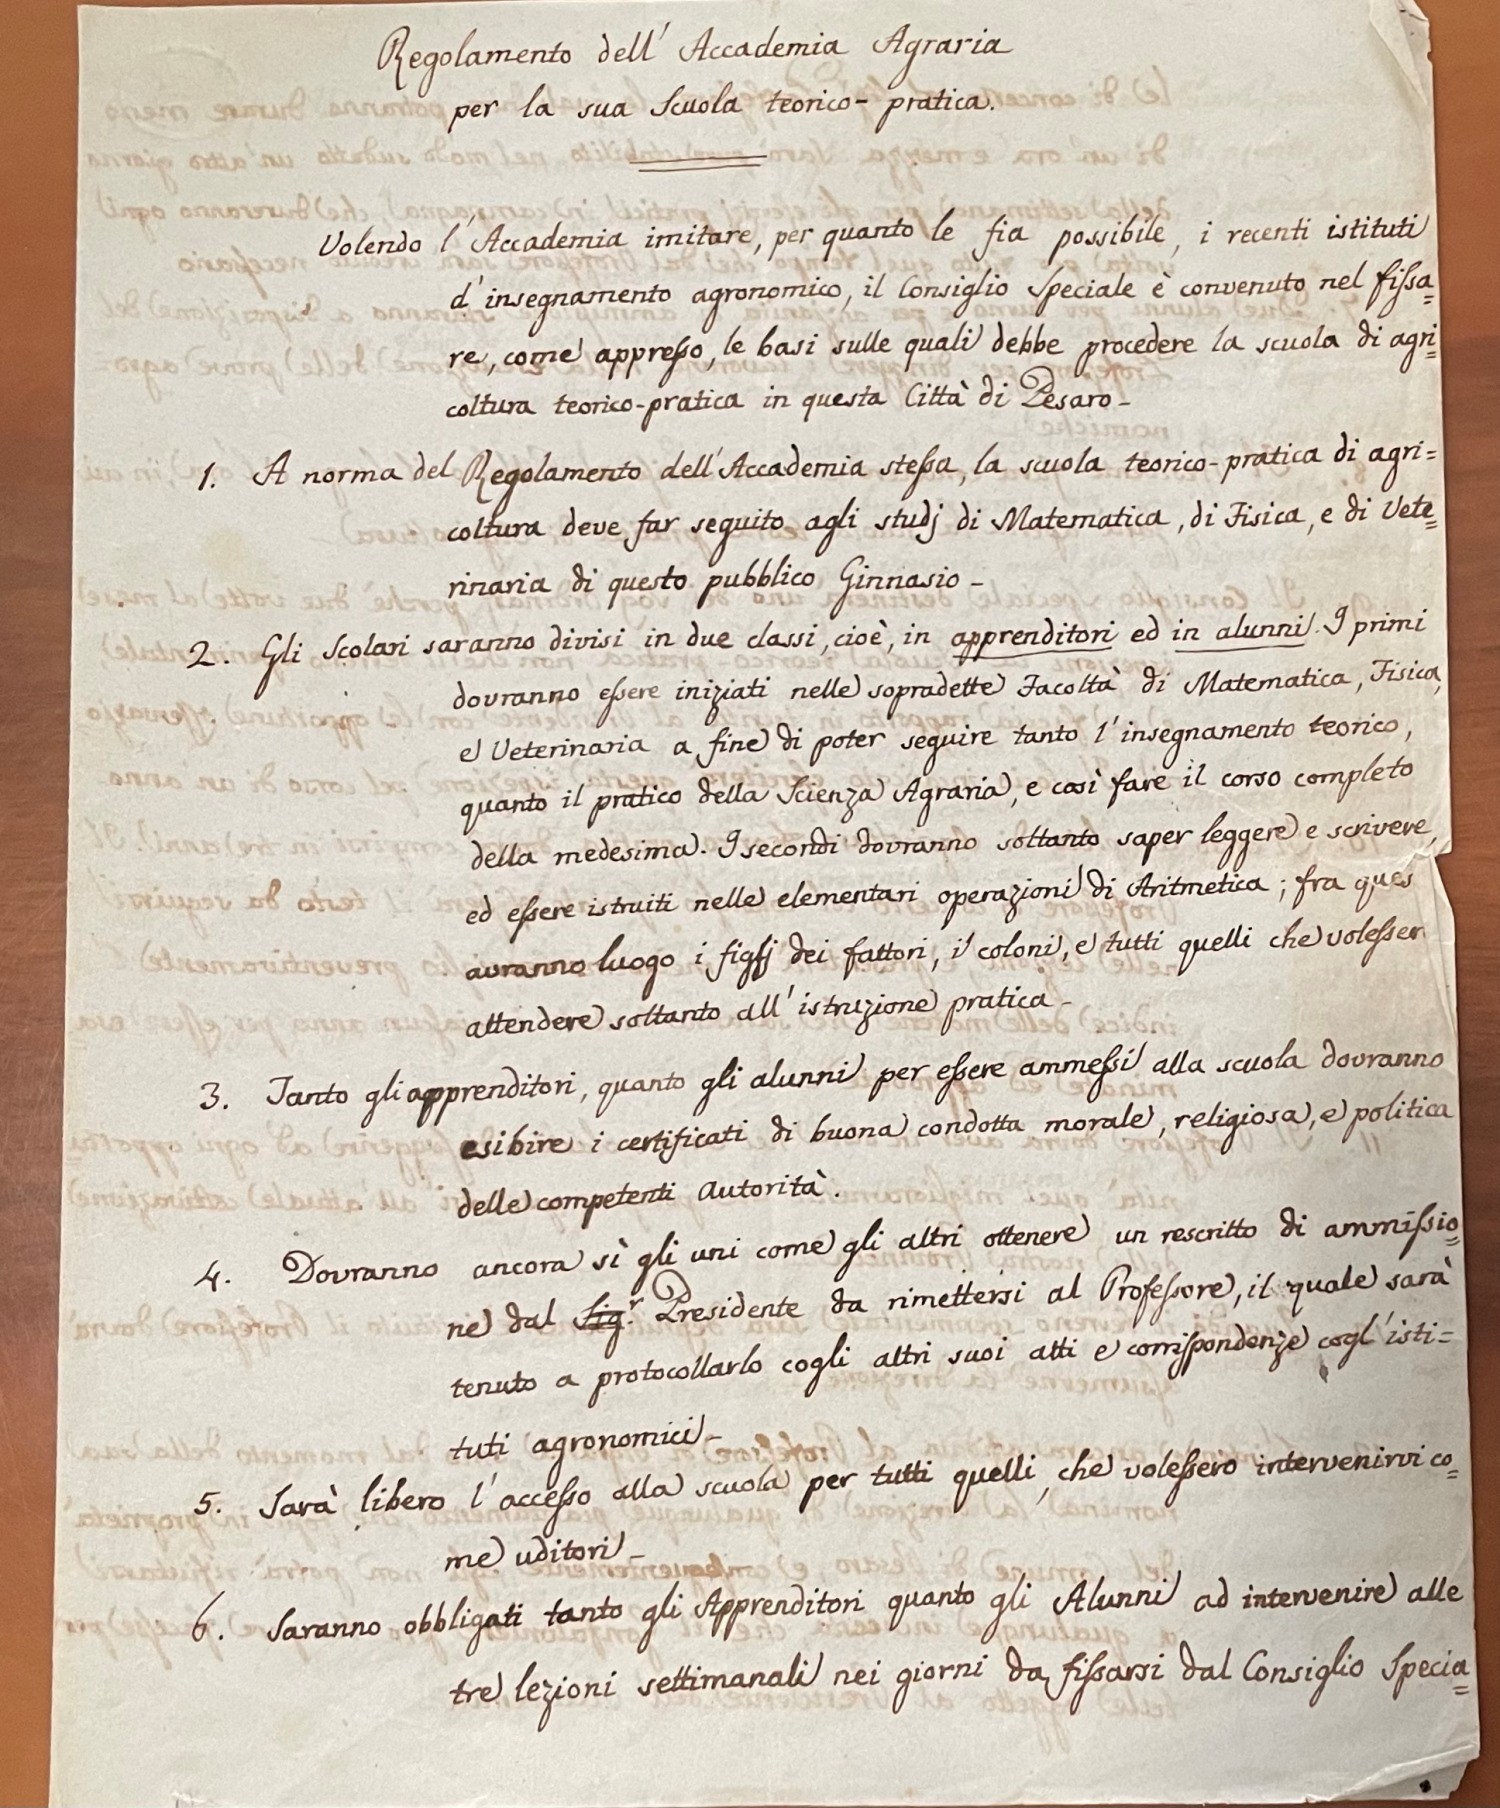 Regolamento dell' Accademia Agraria
per la sua Scuola teorico-pratica.
Volendo l'Accademia imitare, per quanto le fia possibile, i recenti istituti
d'insegnamento agronomico, il Consiglio Speciale è convenuto nel fissa=
re, come appresso, le basi sulle quali debbe procedere la scuola di agri=
coltura teorico-pratica in questa Città di Pesaro -
1. A norma del Regolamento dell'Accademia stessa, la scuola teorico-pratica di agri=
coltura deve far seguito agli studj di Matematica, di Fisica, e di Vete=
rinaria di questo pubblico Ginnasio -
2. Gli Scolari saranno divisi in due classi, cioè, in apprenditori ed in alunni. I primi
dovranno essere iniziati nelle sopradette Facoltà di Matematica, Fisica,
e Veterinaria a fine di poter seguire tanto l'insegnamento teorico,
quanto il pratico della Scienza Agraria, e così fare il corso completo
della medesima. I secondi dovranno soltanto saper leggere e scrivere,
ed essere istruiti nelle elementari operazioni di Aritmetica; fra ques
avranno luogo i figlj dei fattori, i coloni, e tutti quelli che volesser
attendere soltanto all'istruzione pratica -
3. Tanto gli apprenditori, quanto gli alunni per essere ammessi alla scuola dovranno
esibire i certificati di buona condotta morale, religiosa, e politica
delle competenti autorità.
4. Dovranno ancora sì gli uni come gli altri ottenere un rescritto di ammissio=
ne dal Sig.r Presidente da rimettersi al Professore, il quale sarà
tenuto a protocollarlo cogli altri suoi atti e corrispondenze cogl'isti=
tuti agronomici -
5. Sarà libero l'accesso alla scuola per tutti quelli, che volessero intervenirvi co=
me uditori -
6. Saranno obbligati tanto gli Apprenditori quanto gli Alunni ad intervenire alle
tre lezioni settimanali nei giorni da fissarsi dal Consiglio Specia=